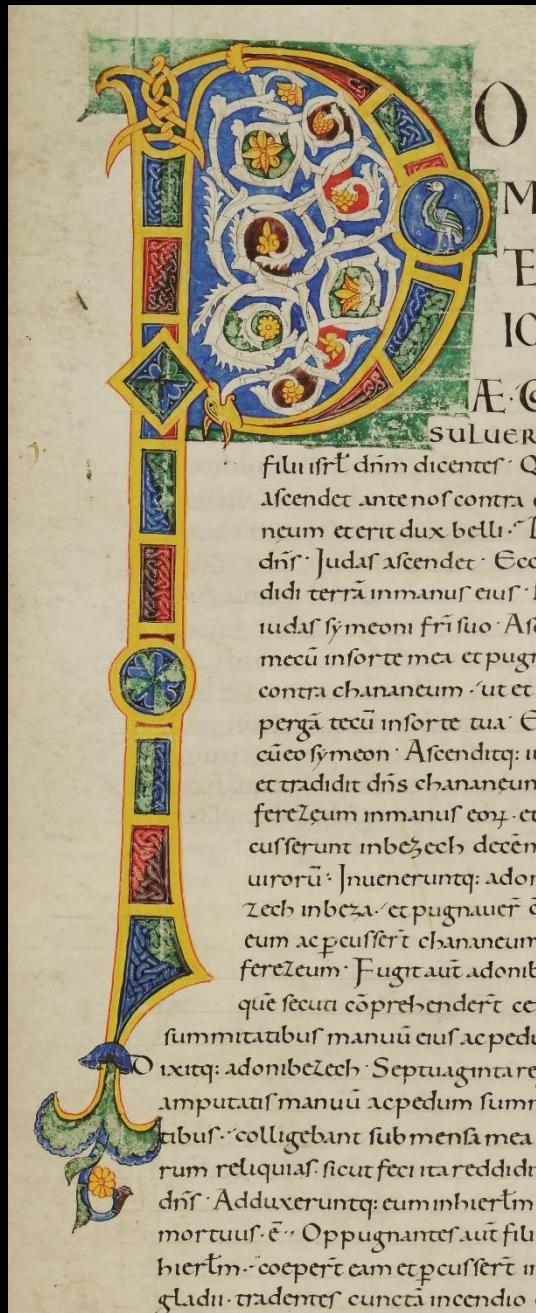 P O
M
TE
IO
Æ · C
SULUER
filii isrł dn̄m dicentes · Q
ascendet ante nos contra
neum et erit dux belli ·
dn̄s · Judas ascendet · Ecc
didi terrā inmanus eius ·
iudas symeoni frī suo · Asc
mecū insorte mea et pugn
contra chananeum · ut et
pergā tecū insorte tua · E
cū eo symeon · Ascenditq: iu
et tradidit dn̄s chananęum
ferezęum inmanus eoꝝ · et
cusserunt inbezech decēm
uirorū · Inueneruntq: ado
zech in beza · et pugnauer̄ c
eum ac ꝑcusser̄t chananeum
ferezeum · Fugit aūt adonib
quē secuti cōprehender̄t ce
summitatibus manuū eius ac pedū
Dixitq: adonibezech · Septuaginta re
amputatis manuū ac pedum summ
tibus · colligebant sub mensa mea
rum reliquias · sicut feci ita reddidi
dn̄s · Adduxeruntq: eum inhierł̄m
mortuus · ē · Oppugnantes aūt filii
hierł̄m · coeper̄t eam et ꝑcusser̄t in
gladii · tradentes cunctā incendio